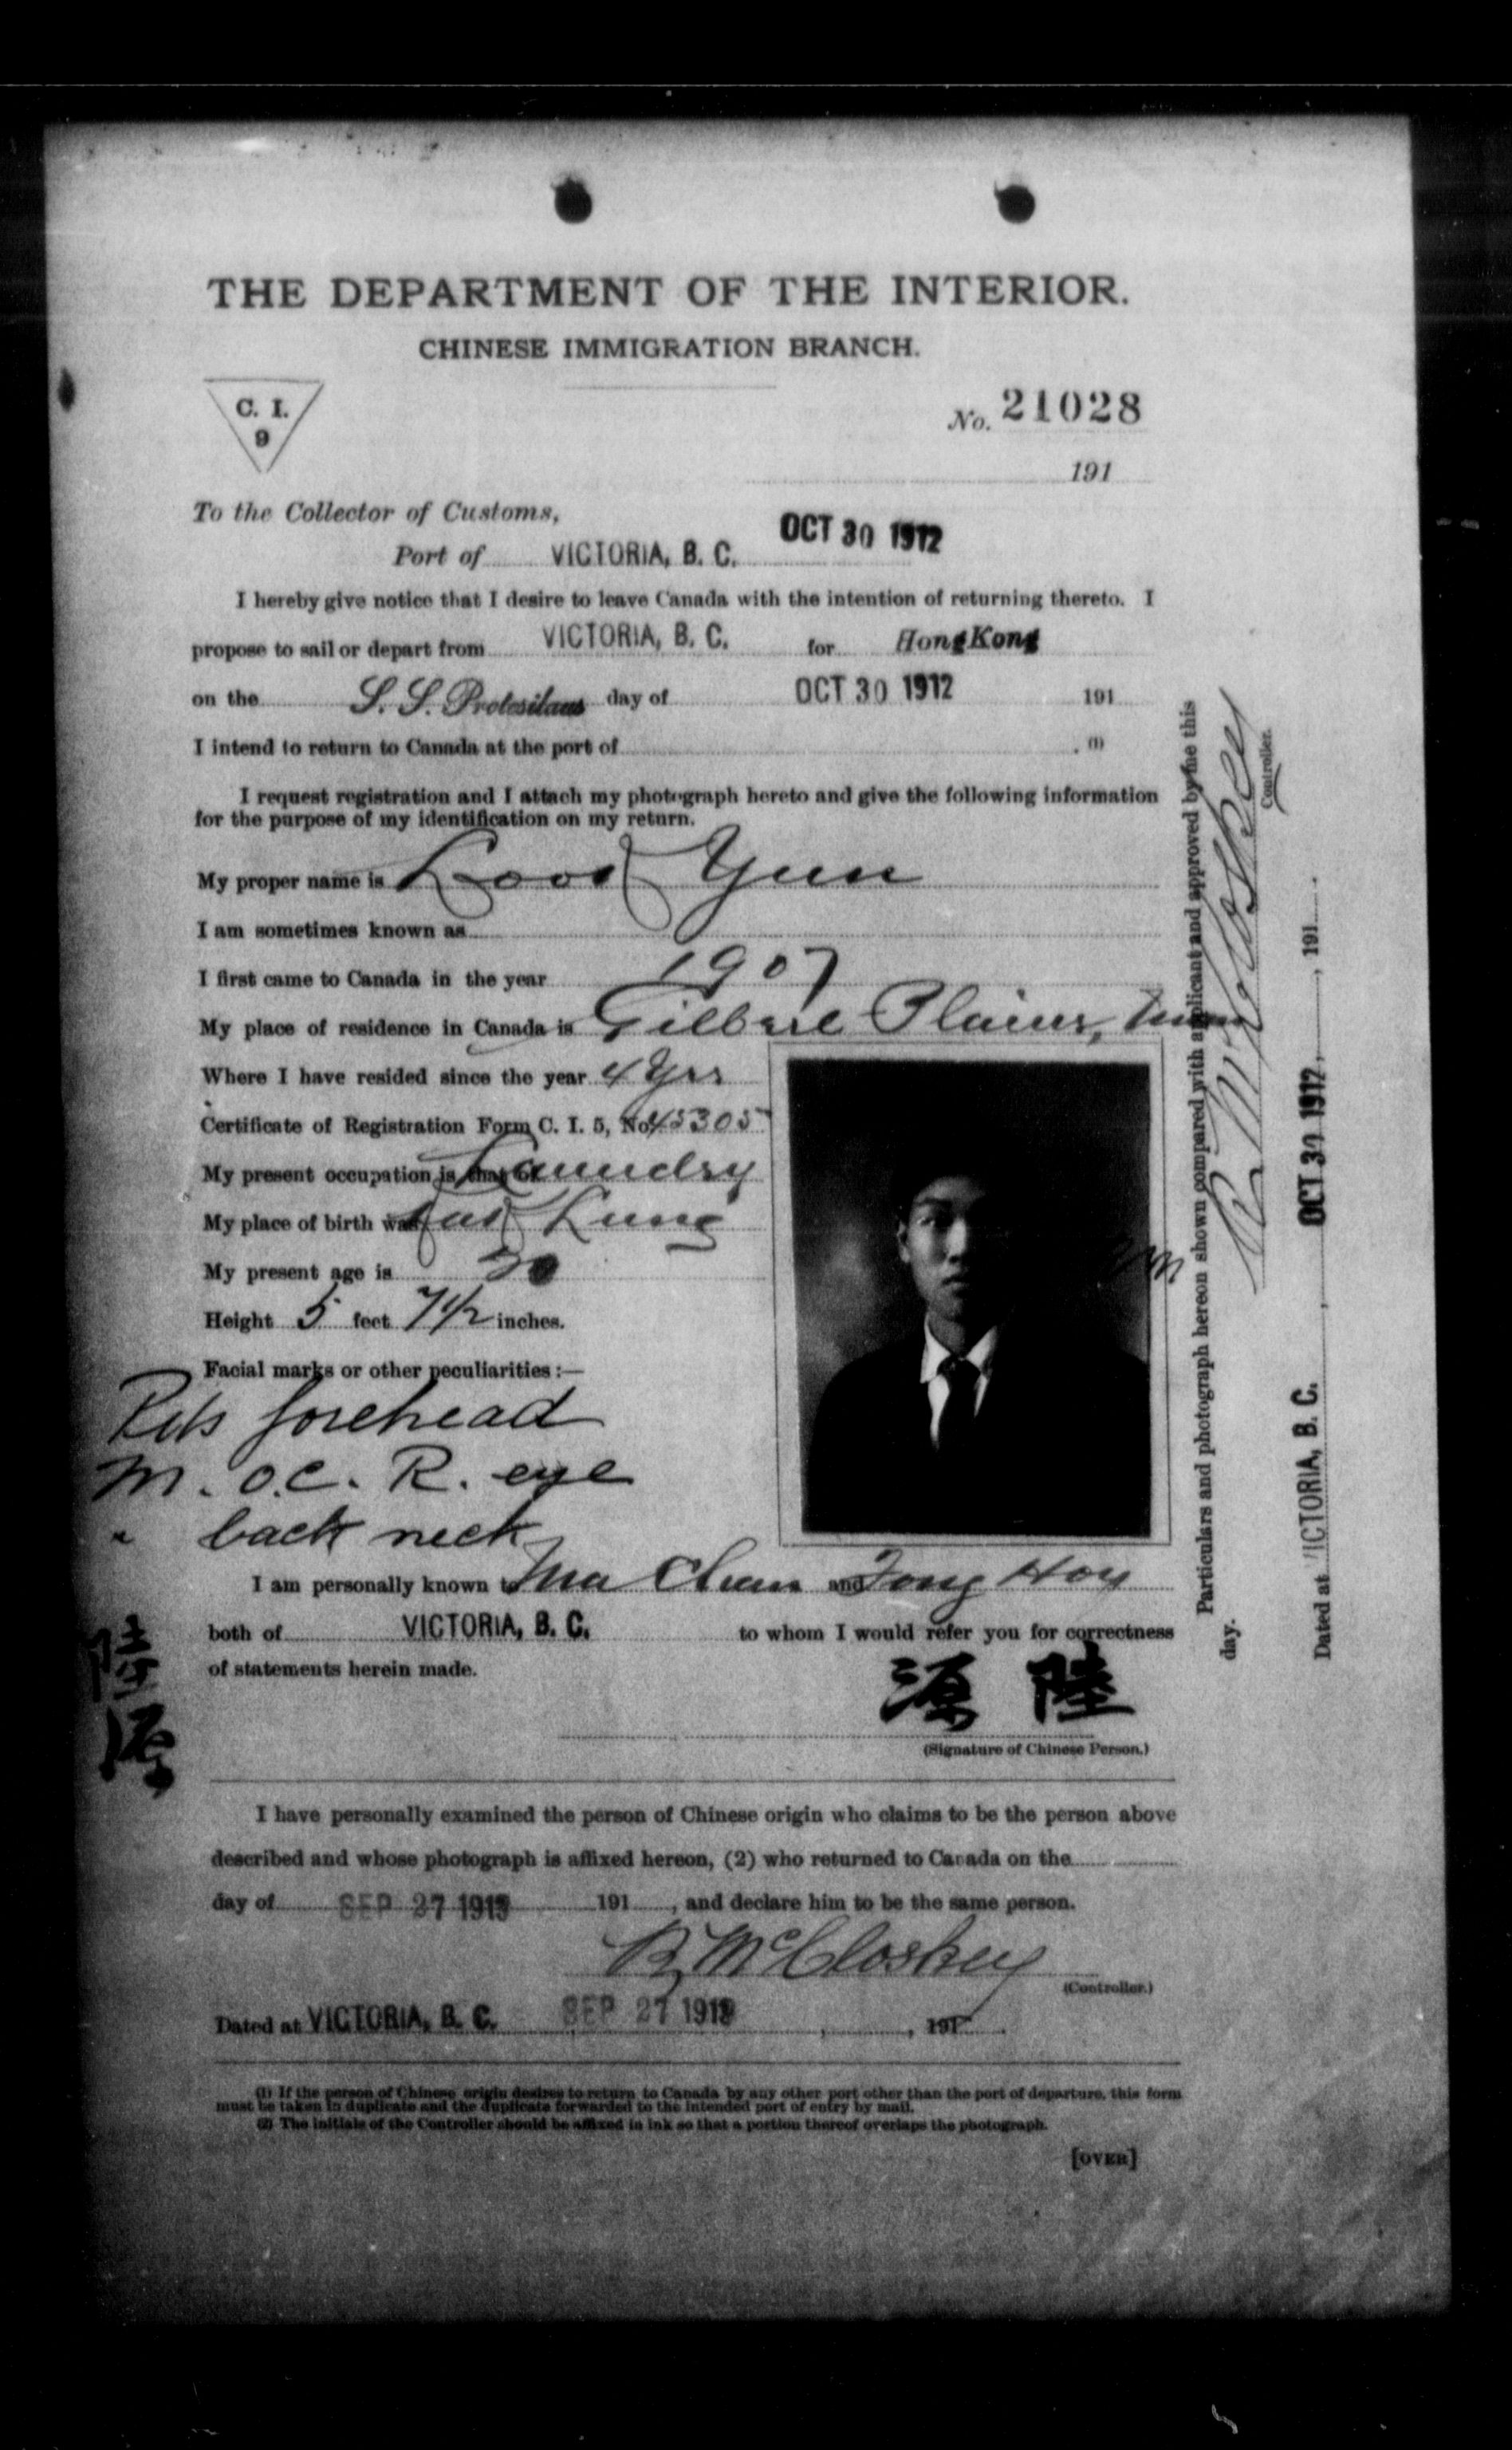 THE DEPARTMENT OF THE INTERIOR.
CHINESE IMMIGRATION BRANCH.
C. I.
9
No. 21028
191
To the Collector of Customs,
OCT 30 1912
Port of VICTORIA, B. C.
I hereby give notice that I desire to leave Canada with the intention of returning thereto. I
propose to sail or depart from VICTORIA, B. C. for HongKong
on the S. S. Protesilaus day of OCT 30 1912 191
I intend to return to Canada at the port of . (1)
I request registration and I attach my photograph hereto and give the following information
for the purpose of my identification on my return.
My proper name is Look Yuen
I am sometimes known as
I first came to Canada in the year 1907
My place of residence in Canada is Gilbert Plains, Man
Where I have resided since the year 4 Yrs
Certificate of Registration Form C. I. 5, No. 45305
My present occupation is that of Laundry
My place of birth was Lung
My present age is
Height 5 feet 7 1/2 inches.
Facial marks or other peculiarities :—
Pits forehead
M. O.C. R. eye
" back neck
I am personally known to Ma Chan and Fong Hoy
both of VICTORIA, B. C. to whom I would refer you for correctness
of statements herein made.
源 陸
(Signature of Chinese Person.)
陸源
I have personally examined the person of Chinese origin who claims to be the person above
described and whose photograph is affixed hereon, (2) who returned to Canada on the
day of SEP 27 1913 191 , and declare him to be the same person.
R McCloskey
(Controller.)
Dated at VICTORIA, B. C. SEP 27 1913 , 191 .
(1) If the person of Chinese origin desires to return to Canada by any other port other than the port of departure, this form
must be taken in duplicate and the duplicate forwarded to the intended port of entry by mail.
(2) The initials of the Controller should be affixed in ink so that a portion thereof overlaps the photograph.
[OVER]
Particulars and photograph hereon shown compared with applicant and approved by me this
day.
R McCloskey
Controller.
Dated at VICTORIA, B. C. , OCT 30 1912 , 191 .